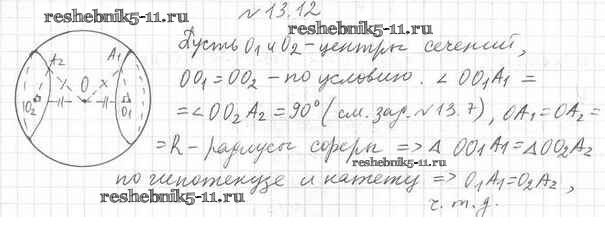 reshebnik5-11.ru
№13.12
reshebnik5-11.ru
A₂
A₁
O
O₂
O₁
Пусть O₁ и O₂ - центры сечений,
OO₁ = OO₂ - по условию. ∠ OO₁A₁ =
= ∠OO₂A₂ = 90° (см. зад. №13.7), OA₁ = OA₂ =
= R - радиусы сферы => Δ OO₁A₁ = ΔOO₂A₂
reshebnik5-11.ru
по гипотенузе и катету => O₁A₁ = O₂A₂,
reshebnik5-11.ru
ч. т. д.